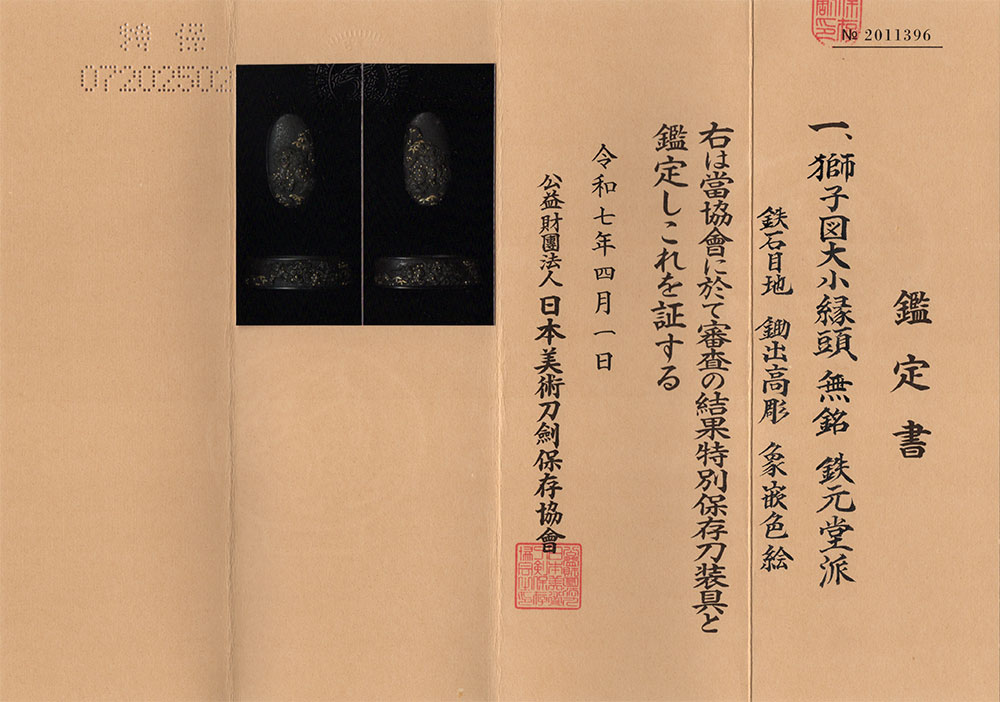 № 2011396
鑑定書
一、獅子図大小縁頭 無銘 鉄元堂派
鉄石目地 鋤出高彫 象嵌色絵
右は當協會に於て審査の結果特別保存刀装具と
鑑定しこれを証する
令和七年四月一日
公益財團法人 日本美術刀劍保存協會
特保
07202502